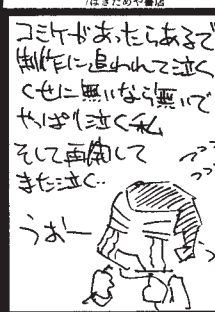 はきだめや書店
コミケがあったらあるで
制作に追われて泣く
くせに無いなら無いで
やっぱり泣く私
そして再開して
また泣く…
うおー